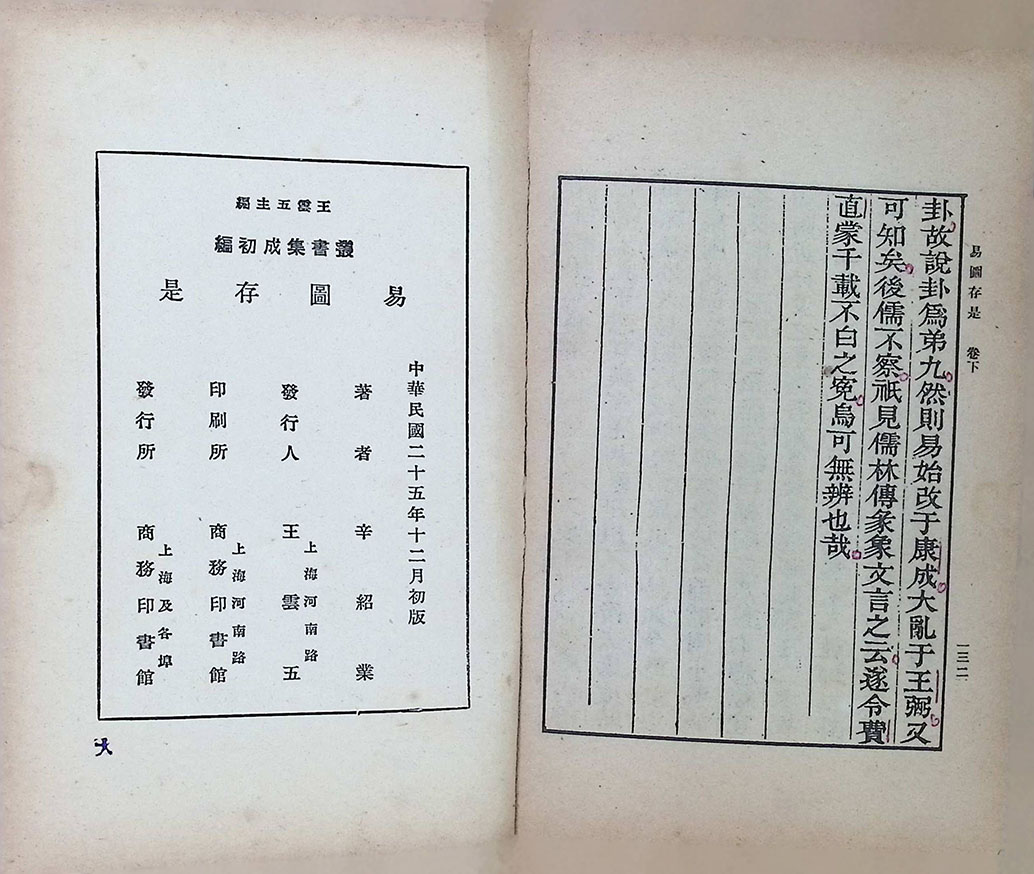 卦故說卦爲弟九然則易始改于康成大亂于王弼又
可知矣後儒不察祇見儒林傳彖象文言之云遂令費
直蒙千載不白之冤烏可無辨也哉
易圖存是 卷下
一三二
王雲五主編
叢書集成初編
易圖存是
中華民國二十五年十二月初版
著者 辛紹業
發行人 王雲五
上海河南路
印刷所 商務印書館
上海河南路
發行所 商務印書館
上海及各埠